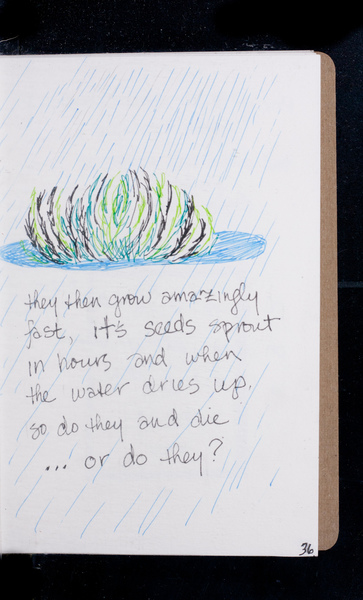 they then grow amazingly
fast, it's seeds sprout
in hours and when
the water dries up,
so do they and die
... or do they?
36